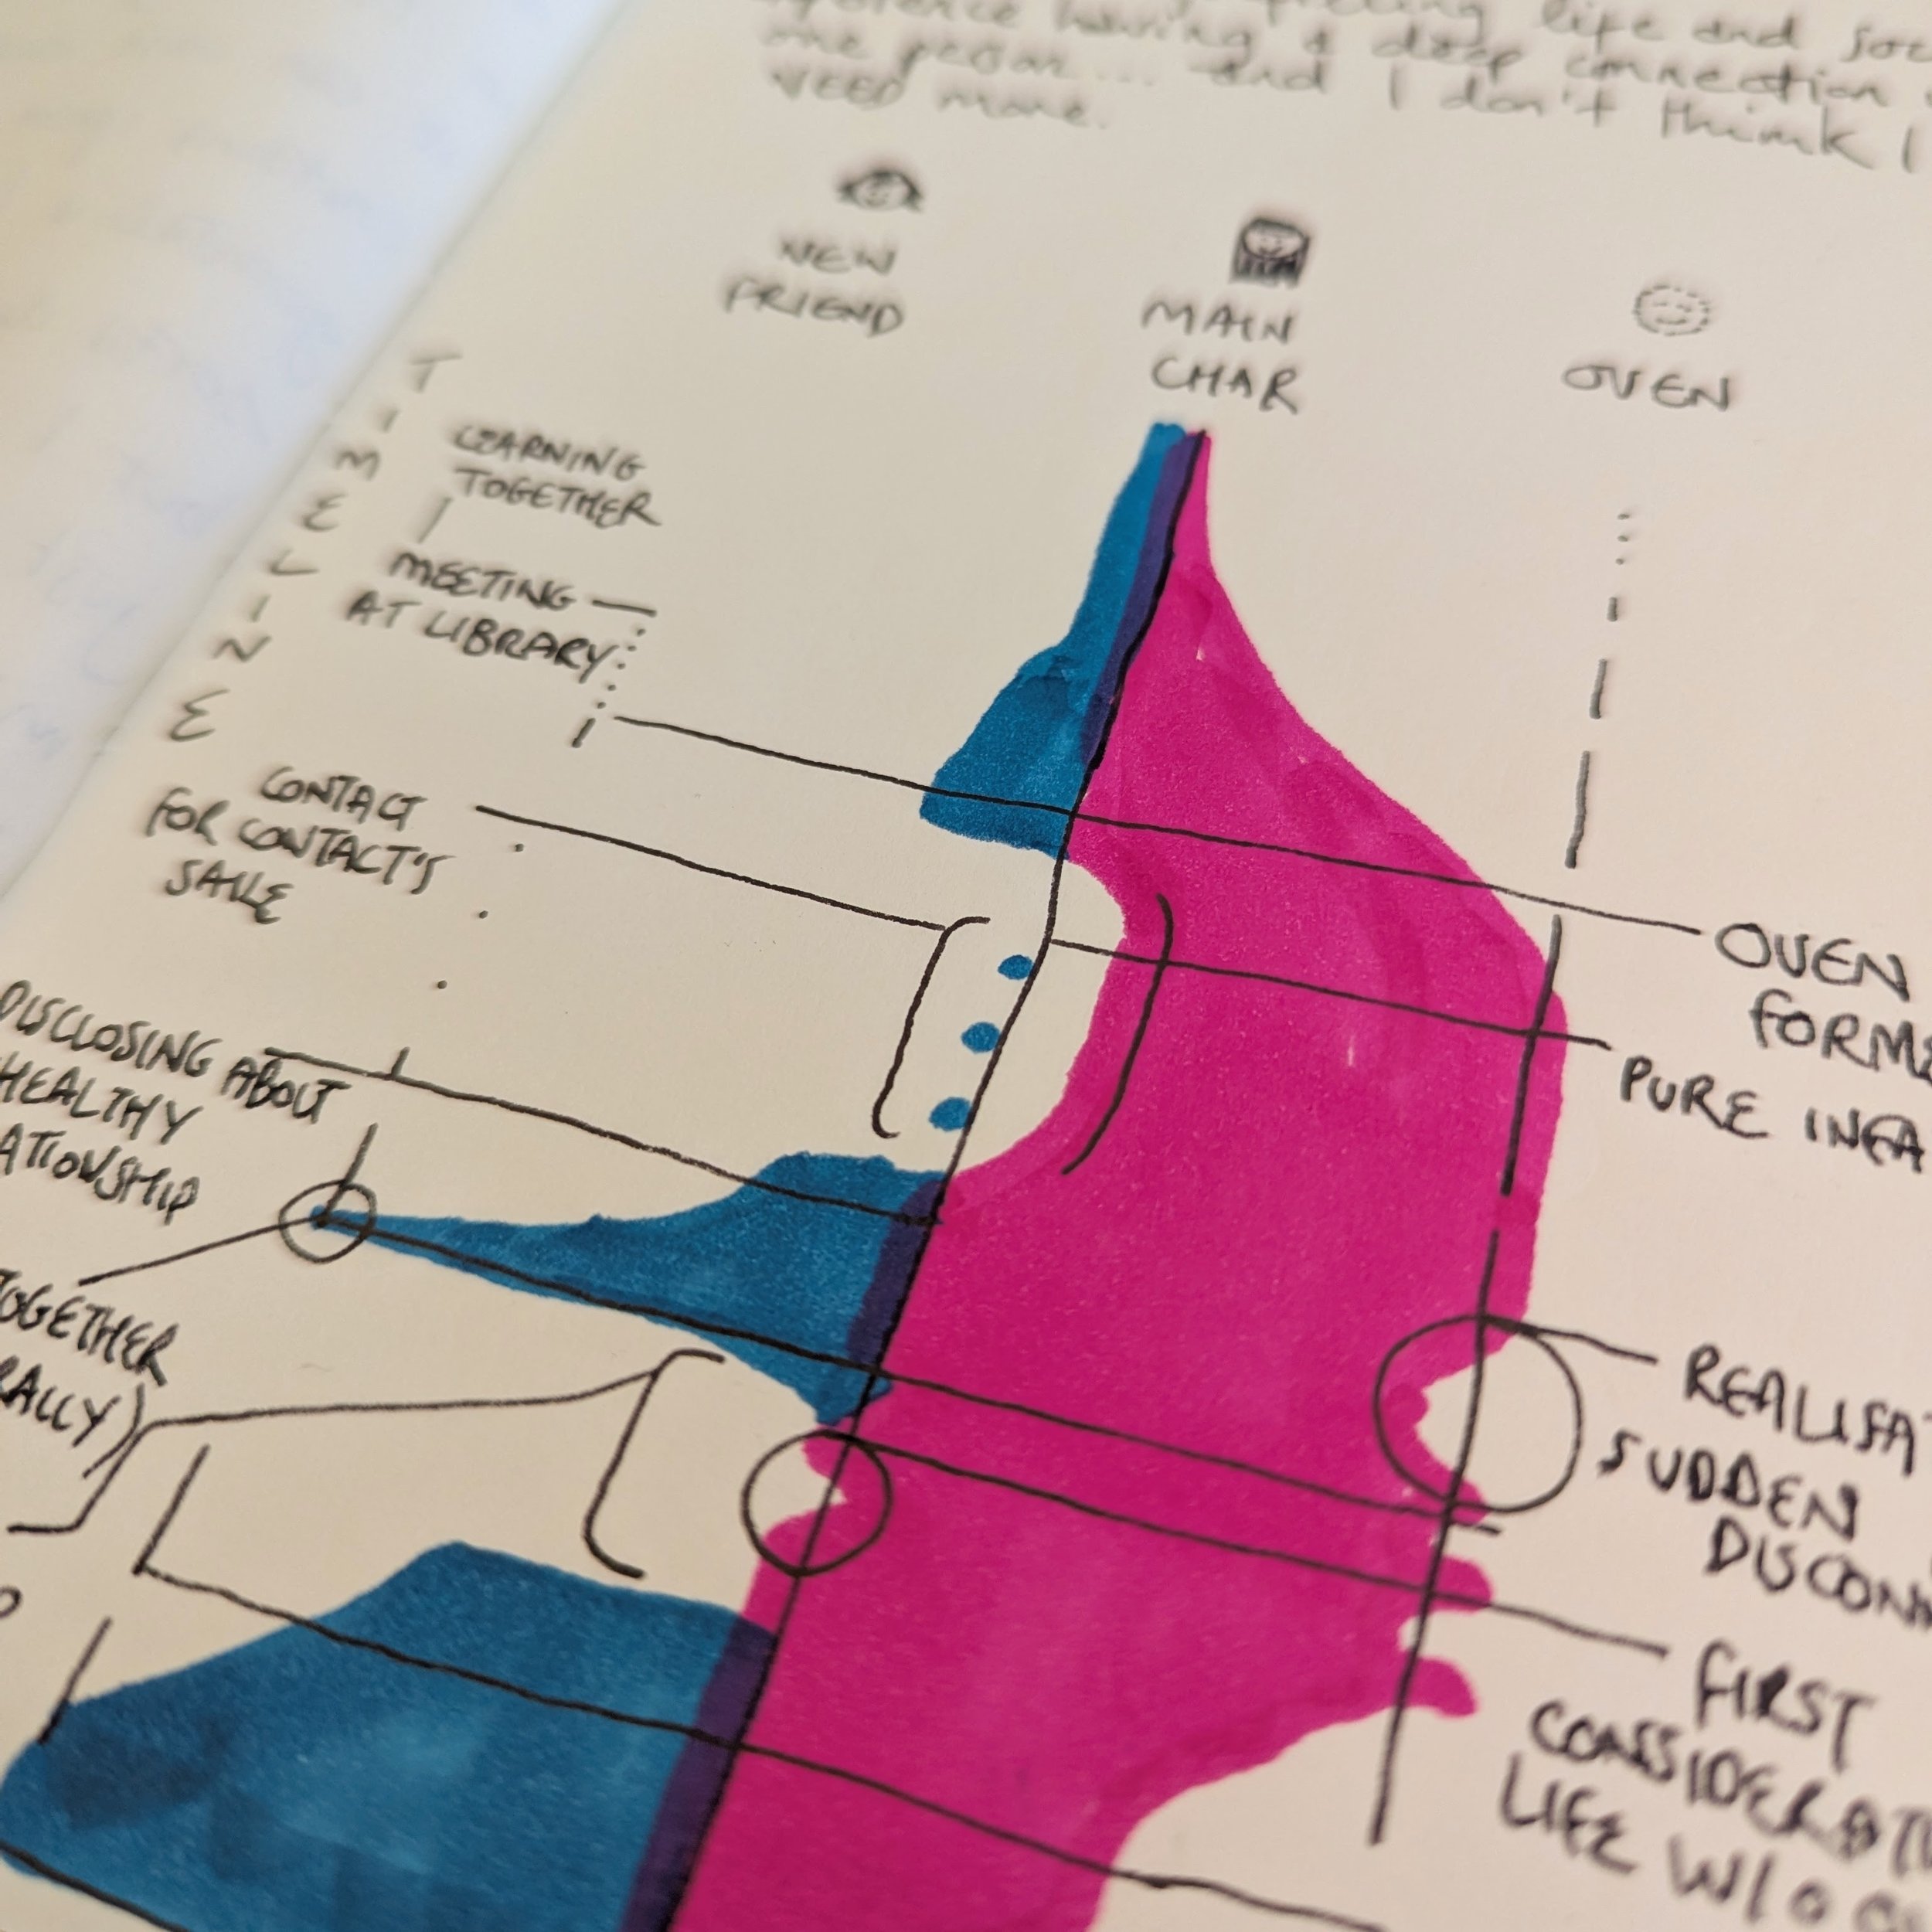 having a deep connection
life and
one person... and I don't think I
NEED more.
NEW
FRIEND
MAIN
CHAR
OVEN
TIMELINE
LEARNING
TOGETHER
MEETING
AT LIBRARY
CONTACT
FOR CONTACT'S
SAKE
DISCLOSING ABOUT
HEALTHY
ATIONSHIP
TOGETHER
RALLY)
OVEN
FORMS
PURE INFA
REALISAT
SUDDEN
DISCONN
FIRST
CONSIDERATI
LIFE W/O